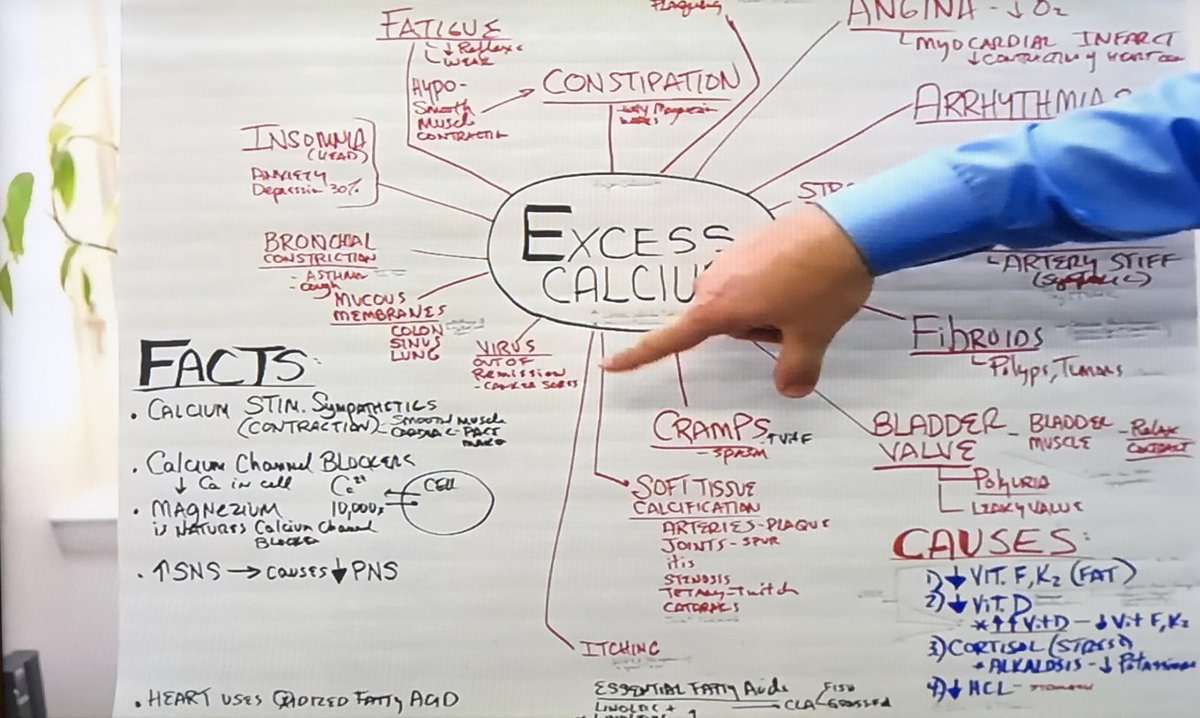 FATIGUE
↓ Reflexes
WEAK
HYPO-
Smooth
Muscle
CONTRACTION
CONSTIPATION
ANGINA - ↓O2
MYOCARDIAL INFARCT
ARRHYTHMIAS
INSOMNIA
(HEAD)
ANXIETY
Depression 30%
BRONCHIAL
CONSTRICTION
- ASTHMA
- Cough
MUCOUS
MEMBRANES
COLON
SINUS
LUNG
VIRUS
OUT OF
Remission
- CANKER SORES
EXCESS
CALCIU
ARTERY STIFF
FIBROIDS
Polyps, TUMORS
CRAMPS
- SPASM
BLADDER - BLADDER - Relax
VALVE MUSCLE CONTRACT
Polyuria
LEAKY VALVE
SOFT TISSUE
CALCIFICATION
ARTERIES - PLAQUE
JOINTS - SPUR
itis
STENOSIS
TETANY - Twitch
CATARACTS
ITCHING
FACTS:
• CALCIUM STIM. Sympathetics
(CONTRACTION) - SMOOTH MUSCLE
CARDIAC - PACE
MAKER
• Calcium Channel BLOCKERS
↓ Ca in cell Ca2+ CELL
10,000x
• MAGNEZIUM
is NATURES Calcium Channel
BLOCKER
• ↑SNS → CAUSES ↓PNS
• HEART USES OXIDIZED FATTY ACID
CAUSES:
1) ↓ VIT. F, K2 (FAT)
2) ↓ ViT. D
* ↑↑ Vit D - ↓ Vit F, K2
3) CORTISOL (STRESS)
* ALKALOSIS - ↓ Potassium
4) ↓ HCL - STOMACH
ESSENTIAL FATTY Acids
LINOLEIC + CLA FISH
GRASSFED